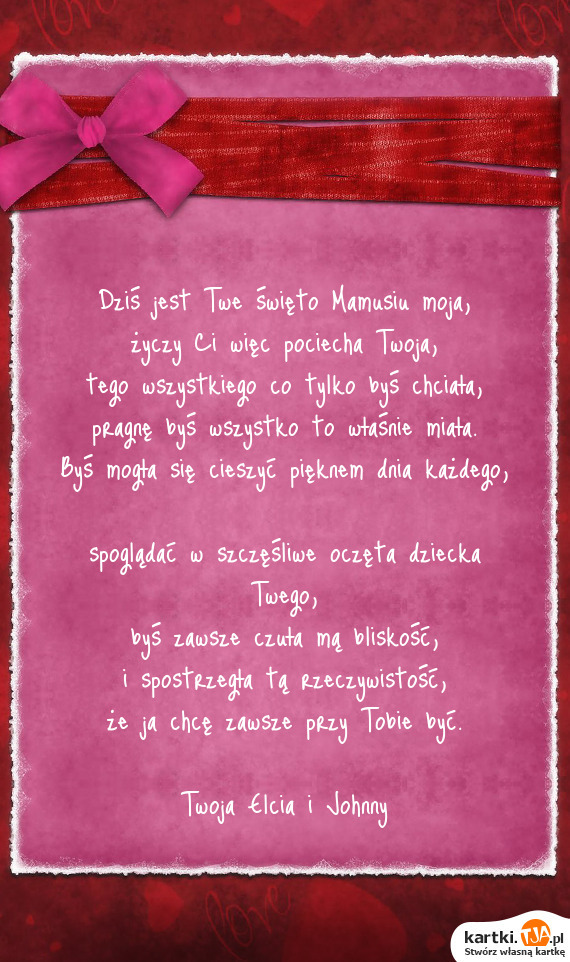 Dziś jest Twe święto Mamusiu moja,
życzy Ci więc pociecha Twoja,
tego wszystkiego co tylko byś chciała,
pragnę byś wszystko to właśnie miała.
Byś mogła się cieszyć pięknem dnia każdego,
spoglądać w szczęśliwe oczęta dziecka
Twego,
byś zawsze czuła mą bliskość,
i spostrzegła tą rzeczywistość,
że ja chcę zawsze przy Tobie być.
Twoja Elcia i Johnny
love
kartki.TJA.pl
Stwórz własną kartkę